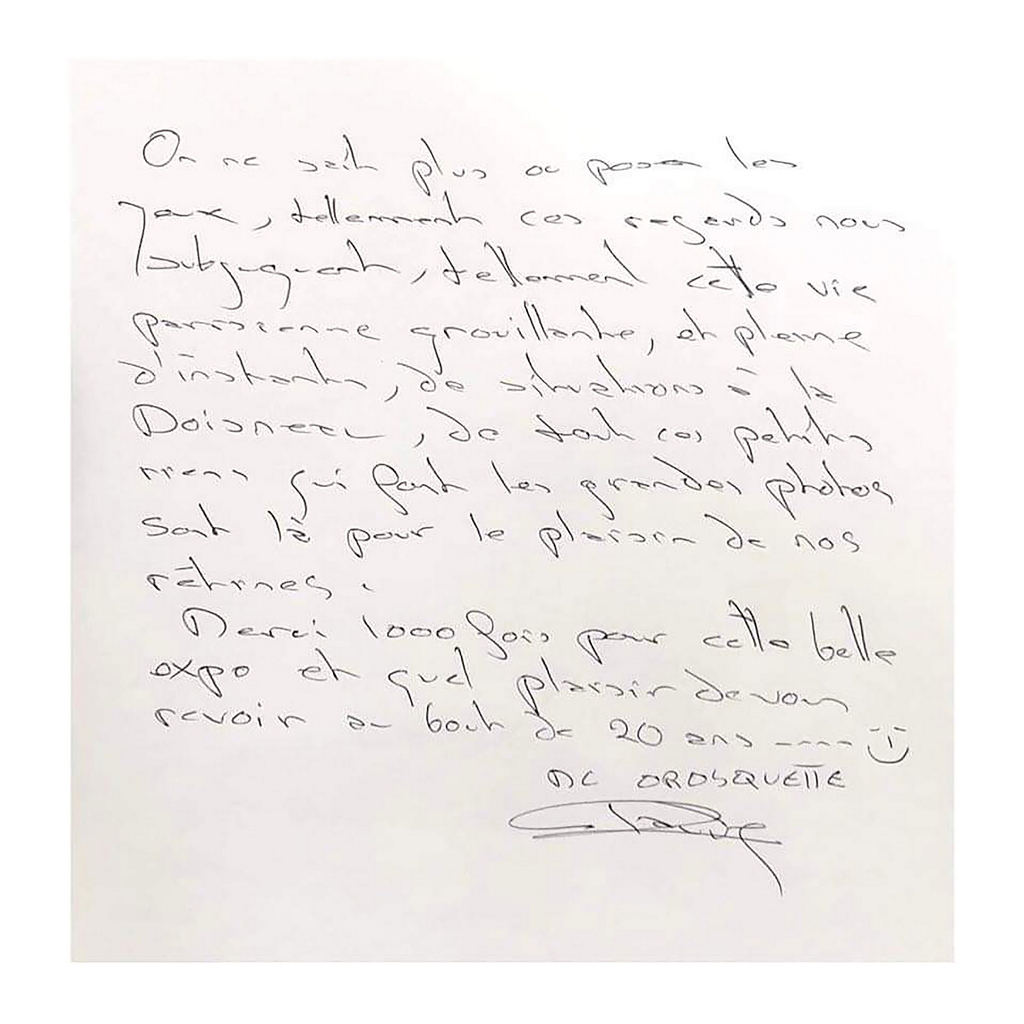 On ne sait plus ou poser les
yeux, tellement ces regards nous
subjuguent, tellement cette vie
parisienne grouillante, et pleine
d'instants, de situations à la
Doisneau, de tout ces petits
riens qui font les grandes photos
sont là pour le plaisir de nos
rétines.
Merci 1000 fois pour cette belle
expo et quel plaisir de vous
revoir au bout de 20 ans ---- ☺
OROSQUETTE